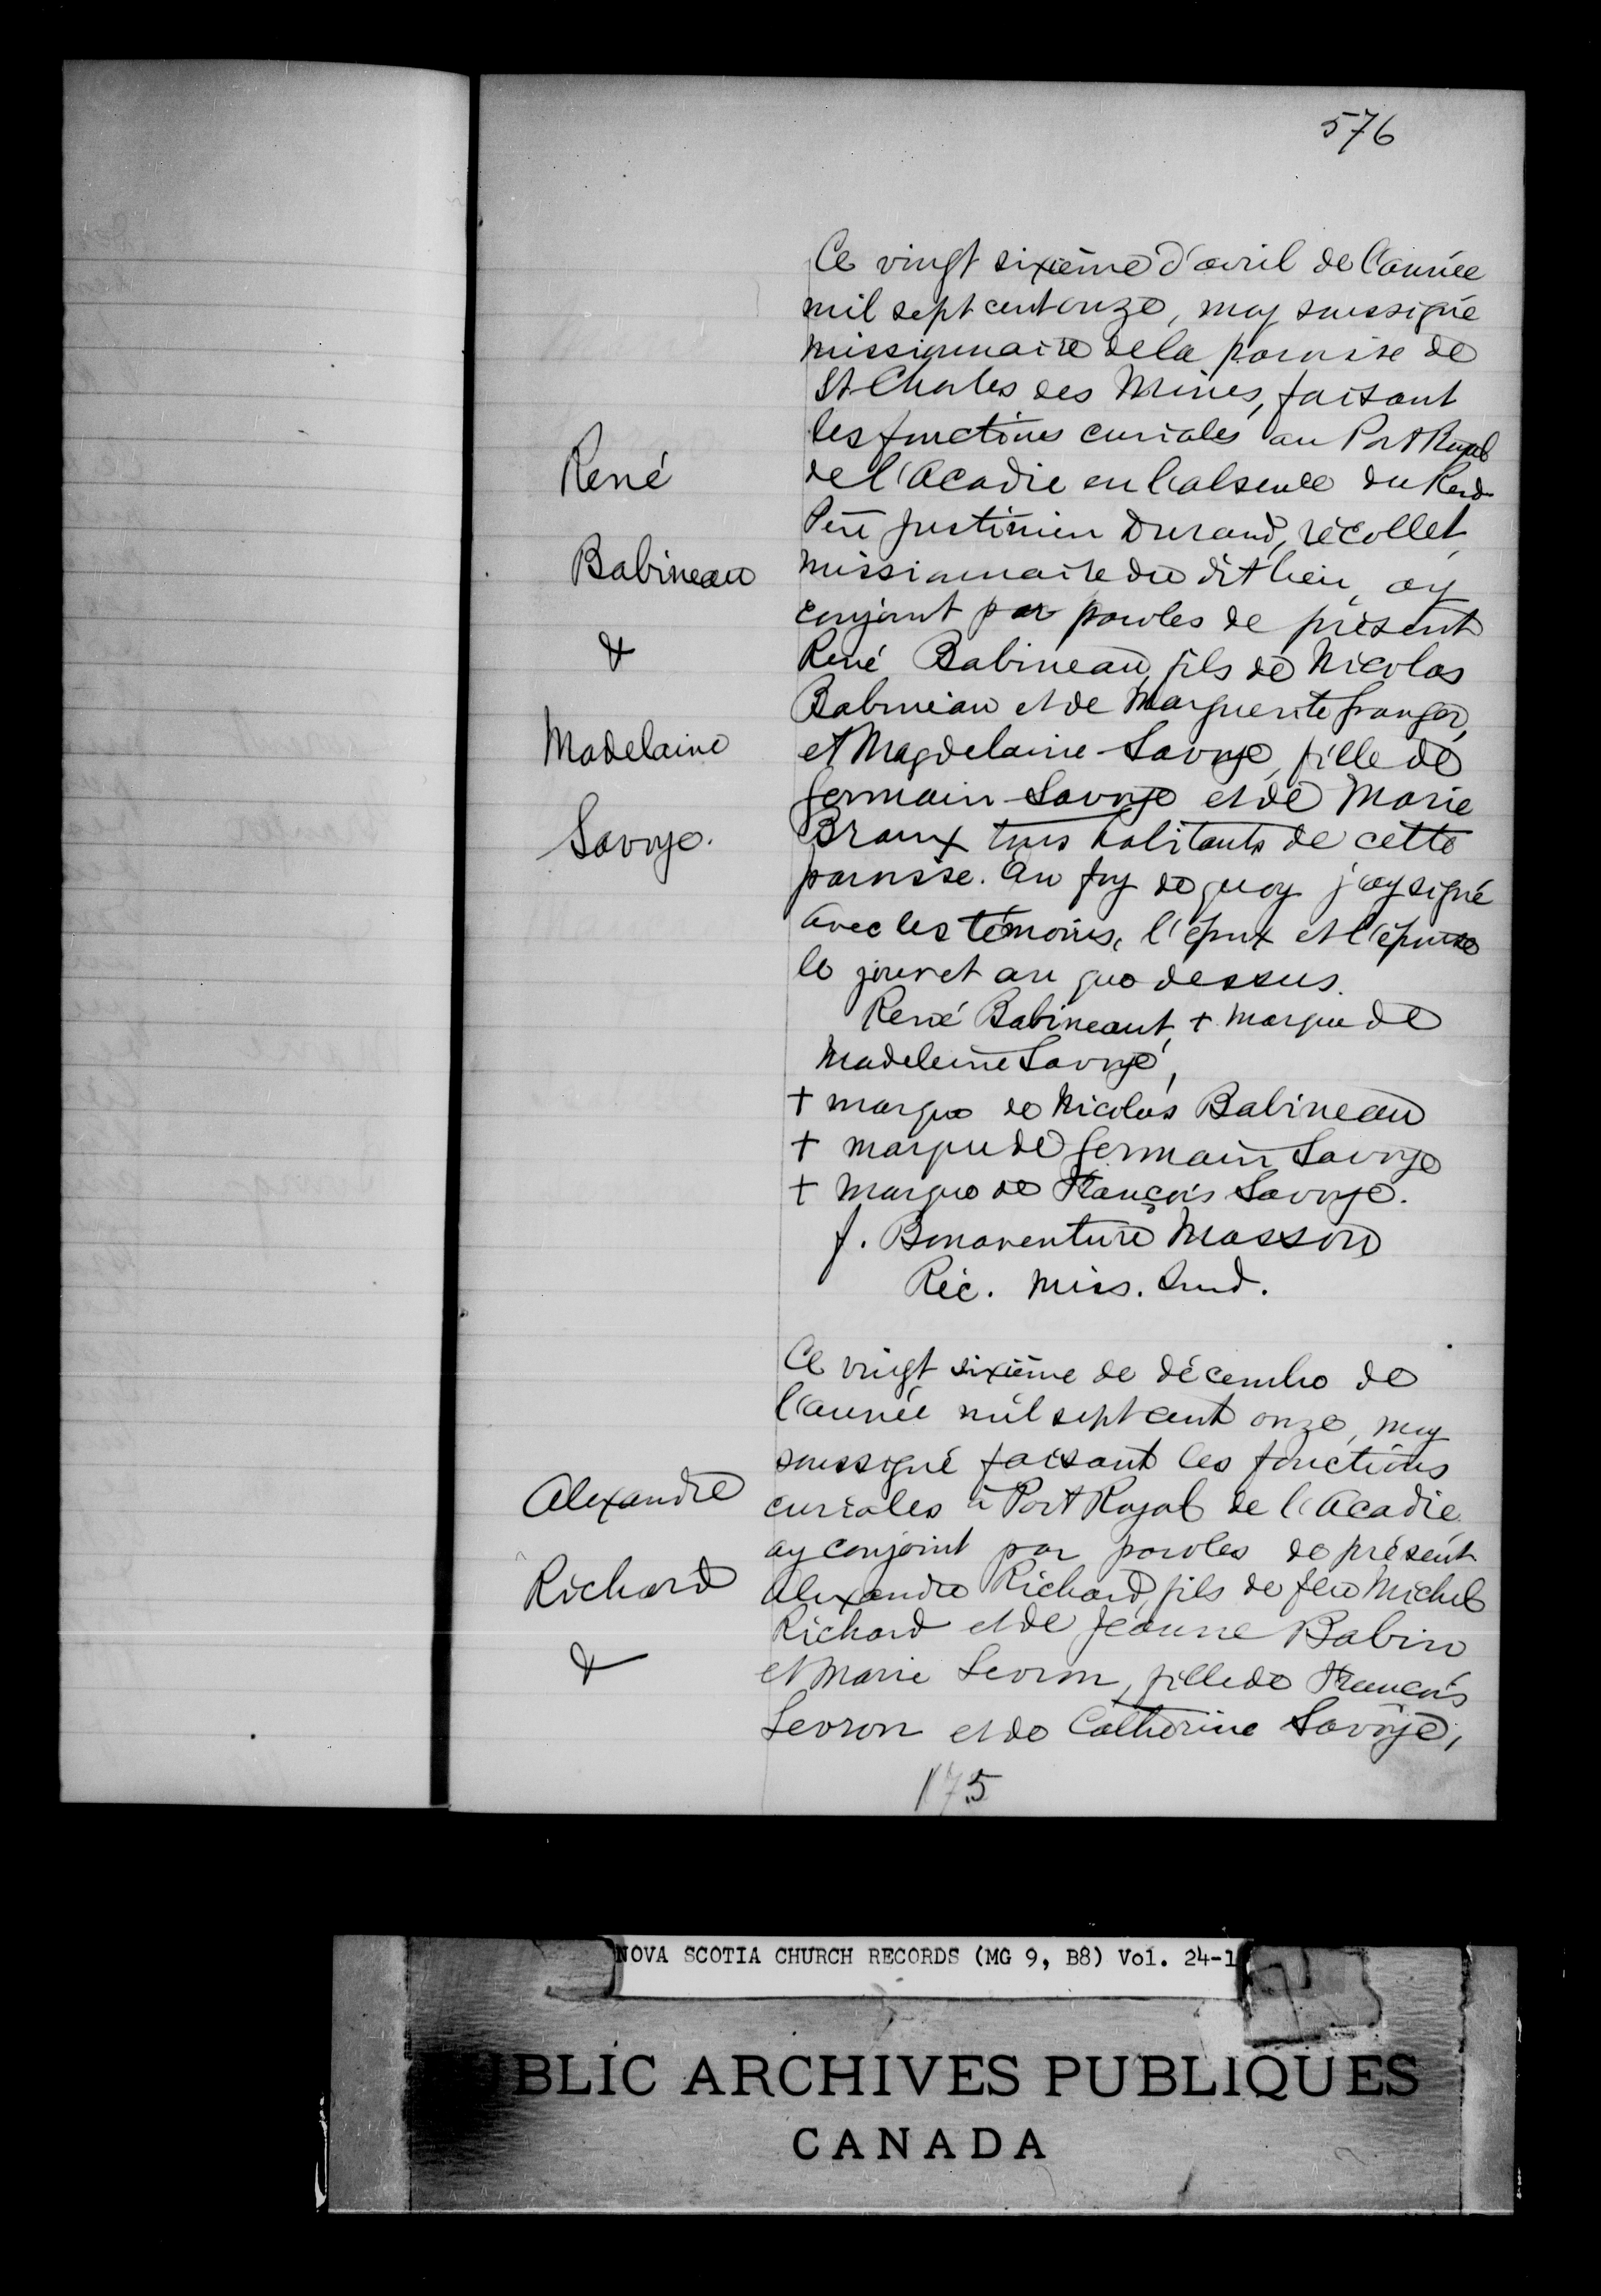 576
Ce vingt sixième d'avril de l'année
mil sept cent onze, moy soussigné
missionnaire de la paroisse de
St Charles des Mines, faisant
les fonctions curiales au Port Royal
de l'Acadie en l'absence du Revd
Père Justinien Durand, récollet,
missionnaire du dit lieu, ay
conjoint par paroles de présent
René Babineau, fils de Nicolas
Babineau et de Marguerite Granger,
et Magdelaine Savoye, fille de
Germain Savoye et de Marie
Braux tous habitants de cette
paroisse. En foy de quoy j'ay signé
avec les témoins, l'époux et l'épouse
le jour et an que dessus.
René Babineaut, + marque de
Madeleine Savoye,
+ marque de Nicolas Babineau
+ marque de Germain Savoye
+ marque de François Savoye.
f. Bonaventure Masson
Réc. Miss. Ind.
René
Babineau
&
Madelaine
Savoye.
Ce vingt sixième de décembre de
l'année mil sept cent onze, moy
soussigné faisant les fonctions
curiales à Port Royal de l'Acadie
ay conjoint par paroles de présent
Alexandre Richard, fils de feu Michel
Richard et de Jeanne Babin
et Marie Levron, fille de François
Levron et de Catherine Savoye,
Alexandre
Richard
&
175
NOVA SCOTIA CHURCH RECORDS (MG 9, B8) Vol. 24-1
PUBLIC ARCHIVES PUBLIQUES
CANADA